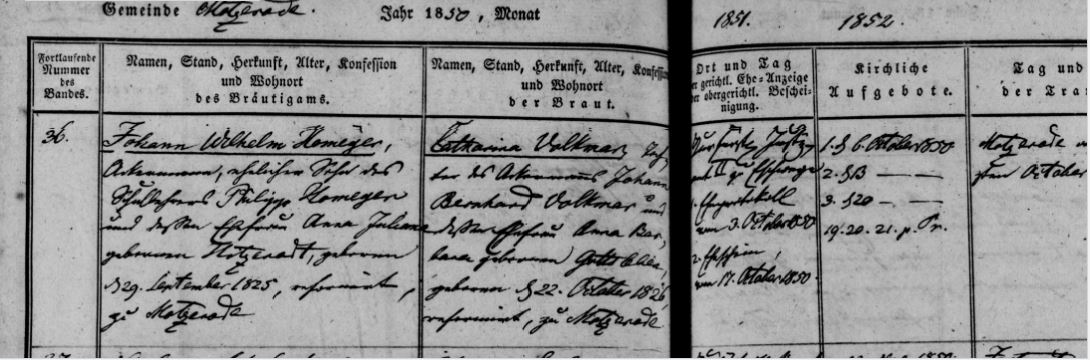 Gemeinde Motzerode. Jahr 1850, Monat
1851. 1852.
Fortlaufende
Nummer
des
Bandes.
Namen, Stand, Herkunft, Alter, Konfession
und Wohnort
des Bräutigams.
Namen, Stand, Herkunft, Alter, Konfession
und Wohnort
der Braut.
Ort und Tag
der gerichtl. Ehe-Anzeige
der obergerichtl. Beschei-
nigung.
Kirchliche
Aufgebote.
Tag und
der
36.
Johann Wilhelm Homeger,
Ackermann, ehelicher Sohn des
Schullehrers Philipp Homeger
und dessen Ehefrau Anna Juliane
geborenen, geboren
d 29. September 1825, reformirt,
zu Motzerode
Catharina Volkmar, Toch-
ter des Ackermanns Johann
Bernhard Volkmar und
dessen Ehefrau Anna Bar-
bara geborenen
geboren d 22. October 1826,
reformirt, zu Motzerode
II zu Eschwege
1. Eheprotokoll
vom 3. October 1850
2. Ehschein,
vom 17. October 1850.
1. d 6. October 1850
2. d 13 — —
3. d 20 — —
19. 20. 21. p. Tr.
Motzerode
October